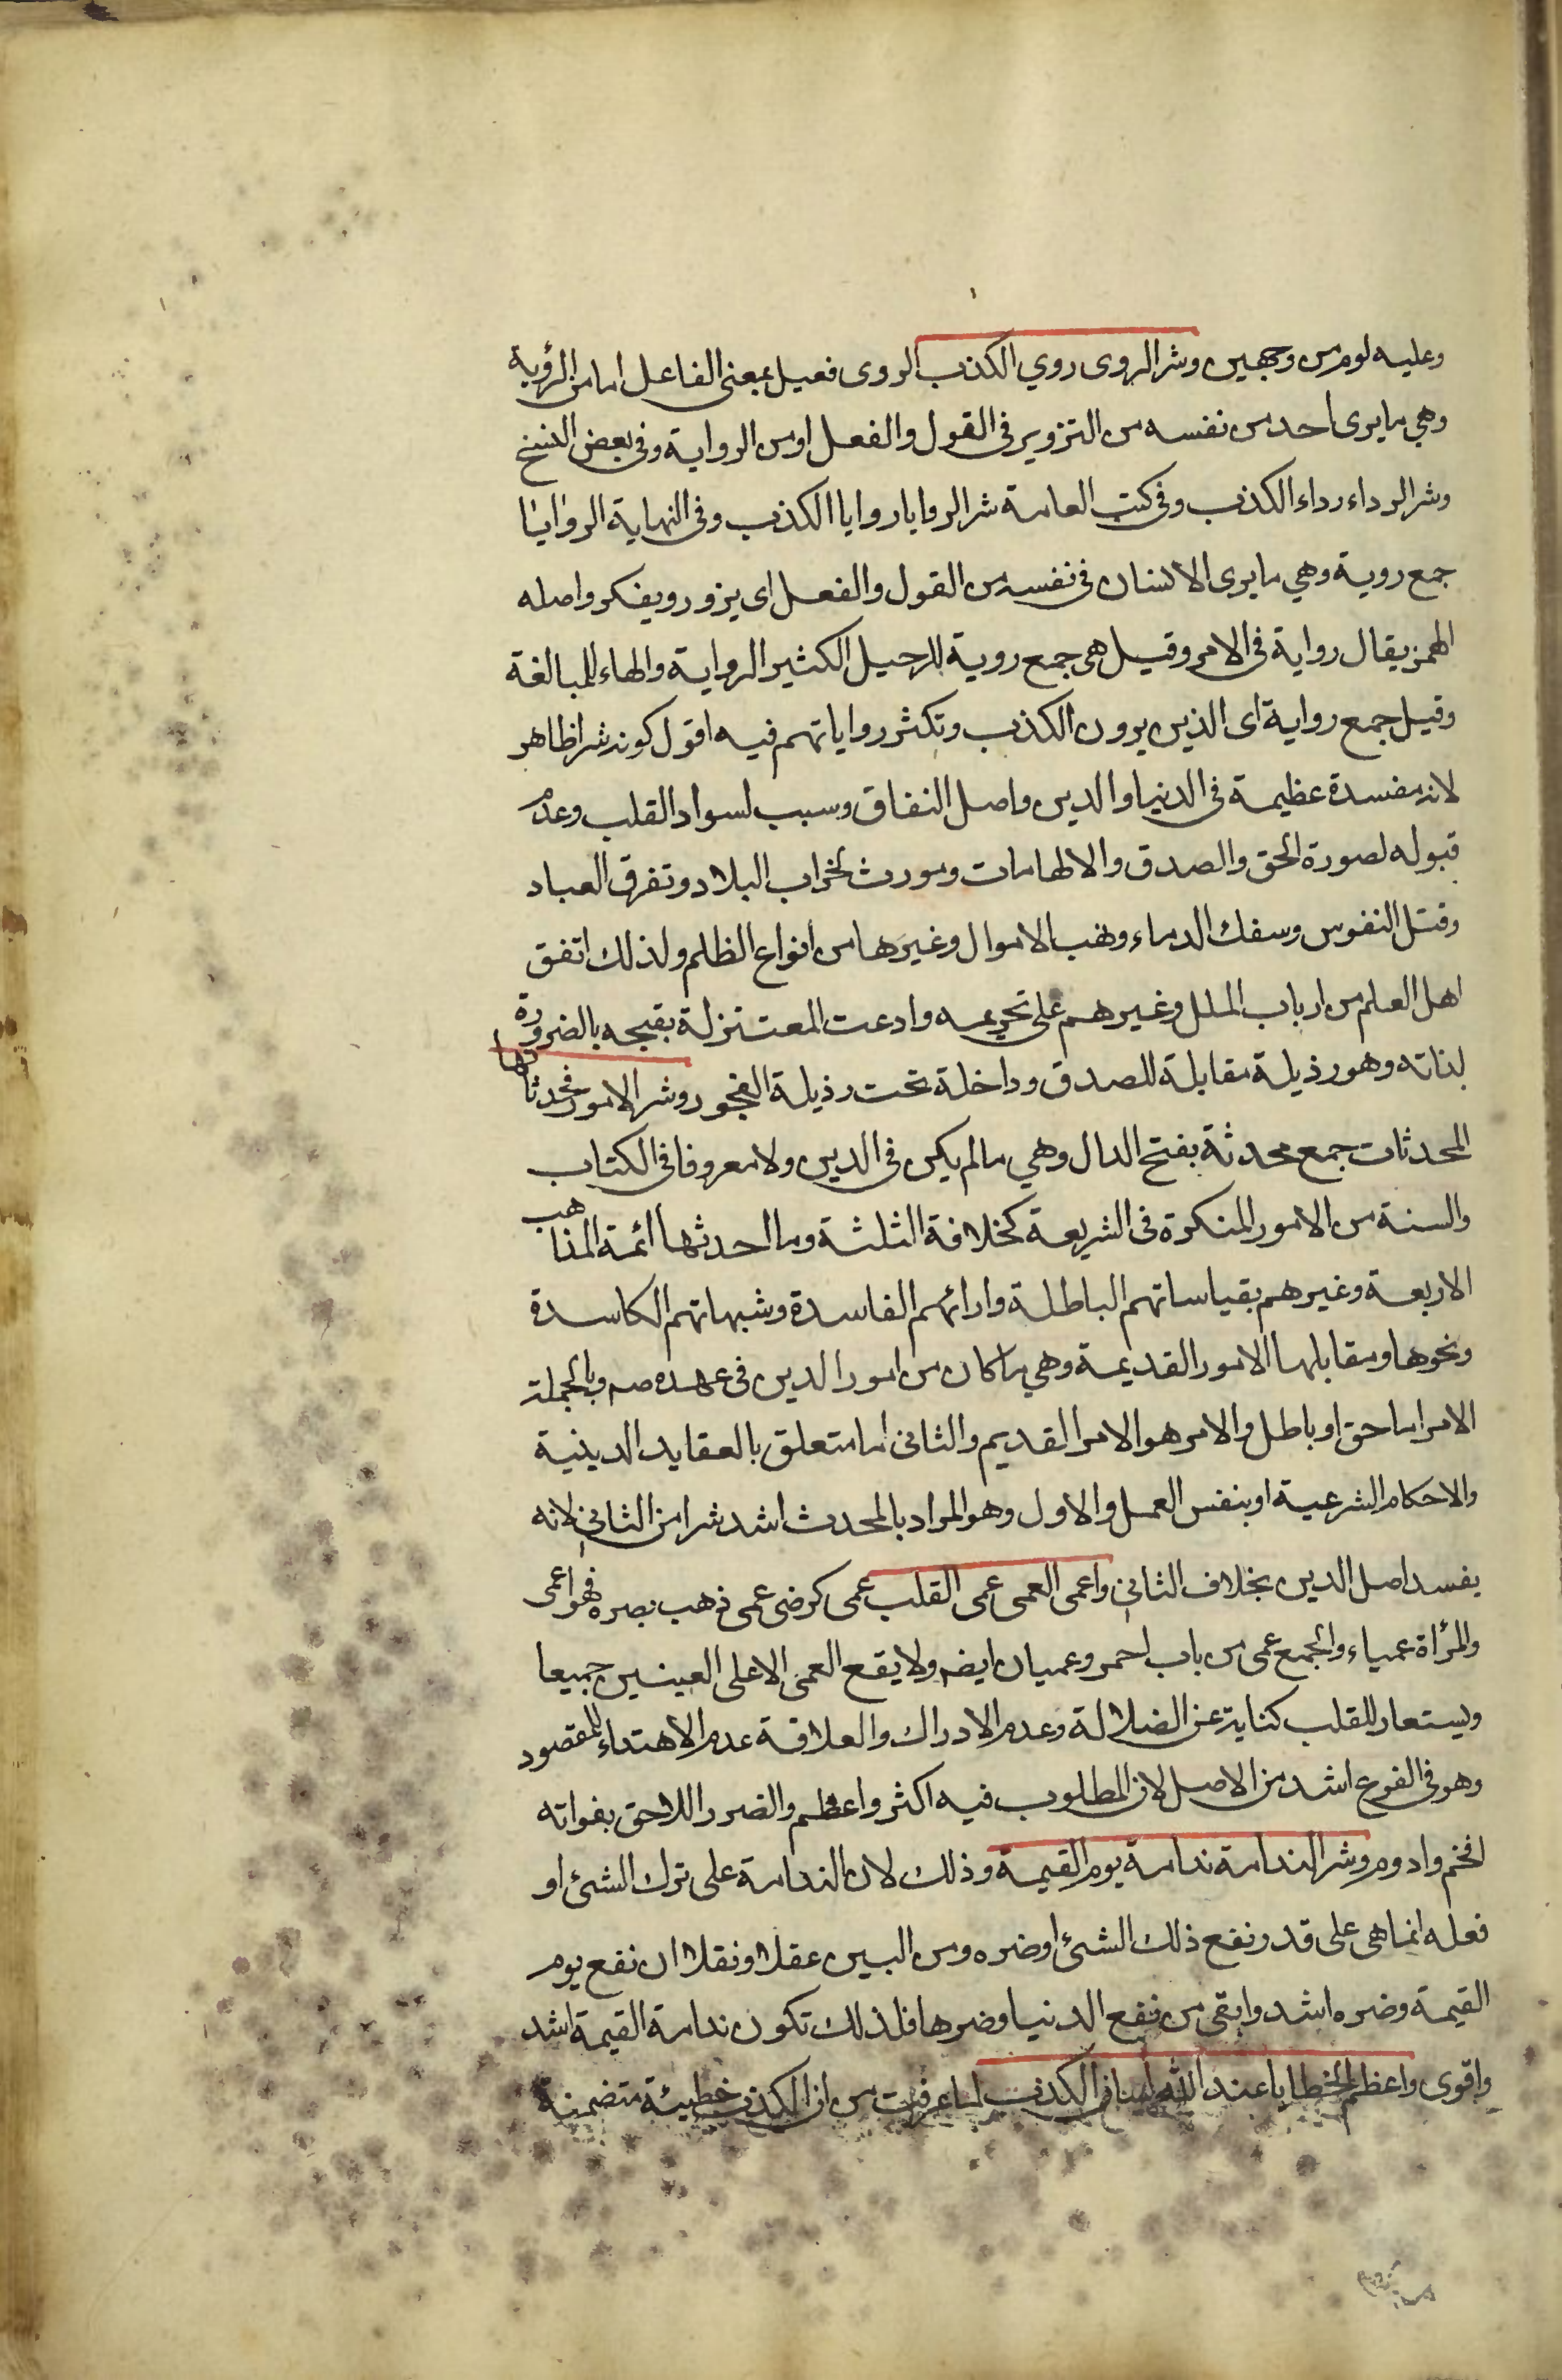 وعليه لوم من وجهين وشر الروى روي الكذب الروى فعيل بمعنى الفاعل اما من الرؤية
وهي ما يرى أحد من نفسه من التزوير في القول والفعل او من الرواية وفي بعض النسخ
وشر الرداء رداء الكذب وفي كتب العامة شر الروايا روايا الكذب وفي النهاية الروايا
جمع روية وهي ما يرى الانسان في نفسه من القول والفعل اى يزور ويفكر واصله
الهمز يقال رواية في الامر وقيل هى جمع روية للرجل الكثير الرواية والهاء للمبالغة
وقيل جمع رواية اى الذين يرون الكذب وتكثر رواياتهم فيه اقول كونه شرا ظاهر
لانه مفسدة عظيمة في الدنيا والدين واصل النفاق وسبب لسواد القلب وعدم
قبوله لصورة الحق والصدق والالهامات ومورث لخراب البلاد وتفرق العباد
وقتل النفوس وسفك الدماء ونهب الاموال وغيرها من انواع الظلم ولذلك اتفق
اهل العلم من ارباب الملل وغيرهم على تحريمه وادعت المعتزلة بقبحه بالضرورة
لذاته وهو رذيلة مقابلة للصدق وداخلة تحت رذيلة الفجور وشر الامور محدثاتها
المحدثات جمع محدثة بفتح الدال وهي ما لم يكن في الدين ولا معروفا في الكتاب
والسنة من الامور المنكرة في الشريعة كخلافة الثلثة وما احدثها ائمة المذاهب
الاربعة وغيرهم بقياساتهم الباطلة وارائهم الفاسدة وشبهاتهم الكاسدة
ونحوها ومقابلها الامور القديمة وهي ما كان من امور الدين في عهده صه وبالجملة
الامر اما حق او باطل والامر هو الامر القديم والثانى اما متعلق بالعقايد الدينية
والاحكام الشرعية او بنفس العمل والاول وهو المراد بالمحدث اشد شرا من الثاني لانه
يفسد اصل الدين بخلاف الثاني واعمى العمى عمى القلب عمى كرضى عمى ذهب بصره فهو اعمى
والمرأة عمياء والجمع عمى من باب احمر وعميان ايضه ولا يقع العمى الا على العينين جميعا
ويستعار للقلب كناية عن الضلالة وعدم الادراك والعلاقة عدم الاهتداء للمقصود
وهو في الفرع اشد من الاصل لان المطلوب فيه اكثر واعظم والضرر اللاحق بفواته
افخم وادوم وشر الندامة ندامة يوم القيمة وذلك لان الندامة على ترك الشئ او
فعله انما هى على قدر نفع ذلك الشئ او ضره ومن البين عقلا ونقلا ان نفع يوم
القيمة وضره اشد وابقى من نفع الدنيا وضرها فلذلك تكون ندامة القيمة اشد
واقوى واعظم الخطايا عند الله لسان الكذب لما عرفت من ان الكذب خطيئة متضمنة